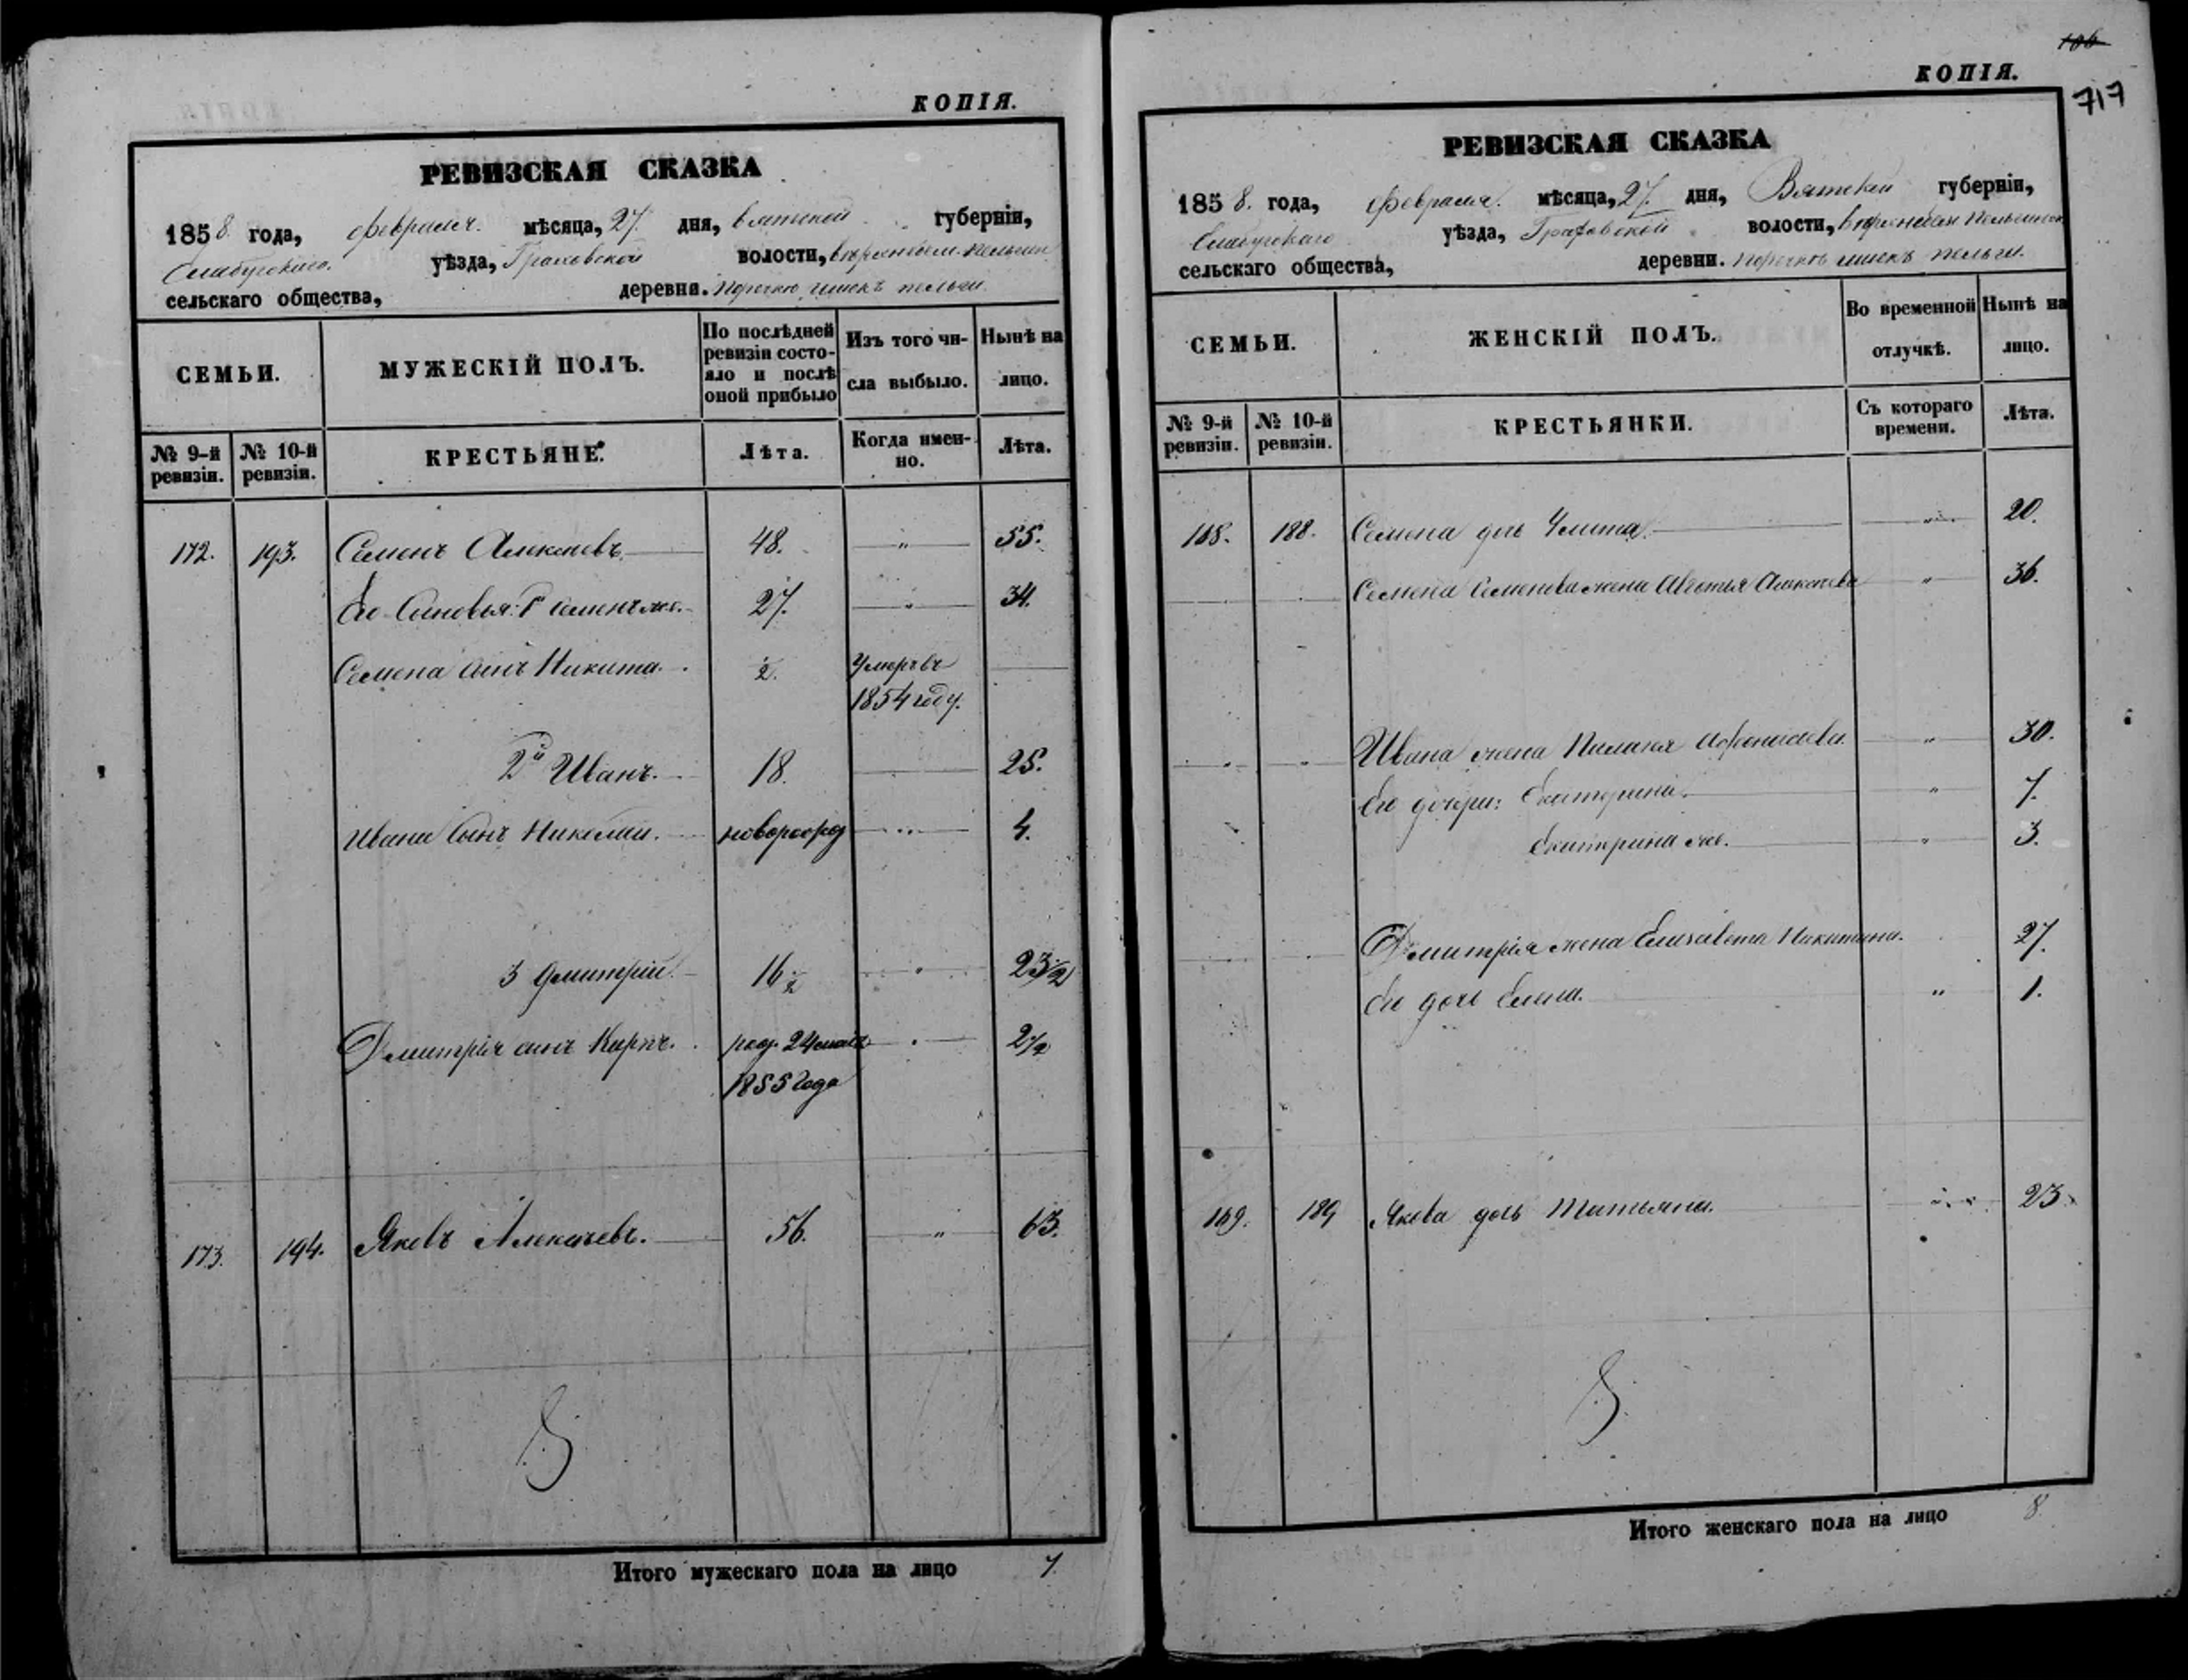 КОПІЯ.
РЕВИЗСКАЯ СКАЗКА
1858 года, февраля мѣсяца, 27 дня, вятской губерніи,
Елабугскаго уѣзда, Граховской волости,
сельскаго общества, деревни. пельги
СЕМЬИ. МУЖЕСКІЙ ПОЛЪ. По послѣдней ревизіи состо-яло и послѣ оной прибыло Изъ того чи-сла выбыло. Нынѣ на лицо.
№ 9-й ревизіи. № 10-й ревизіи. КРЕСТЬЯНЕ. Лѣта. Когда имен-но. Лѣта.
172. 193. Семенъ Алексѣевъ 48. " 55.
Его Сыновья: 1 Семенъ же. 27. " 34.
Семена сынъ Никита. ½. Умеръ въ
1854 году.
2й Иванъ. 18. 25.
Ивана Сынъ Николай. новорожд " 4.
3 Дмитрій 16½ " 23½
Дмитрія сынъ Карпъ. род. 24 2½
1855 года
173. 194. Яковъ Алексѣевъ. 56. " 63.
Итого мужескаго пола на лицо 7.
106
КОПІЯ.
717
РЕВИЗСКАЯ СКАЗКА
1858. года, февраля. мѣсяца, 27. дня, Вятской губерніи,
Елабугскаго уѣзда, Граховской волости,
сельскаго общества, деревни. пельги.
СЕМЬИ. ЖЕНСКІЙ ПОЛЪ. Во временной отлучкѣ. Нынѣ на лицо.
№ 9-й ревизіи. № 10-й ревизіи. КРЕСТЬЯНКИ. Съ котораго времени. Лѣта.
168. 188. Семена дочь Улита. " 20.
Семена Семенова жена Авдотья Алексѣева " 36.
Ивана жена Пелагея Афонасьева. " 30.
Его дочери: Екатерина. " 7.
Екатерина же. " 3.
Дмитрія жена Елизавета Никитина. 27.
Его дочь Елена. " 1.
169. 189 Якова дочь Татьяна. " 23.
Итого женскаго пола на лицо 8